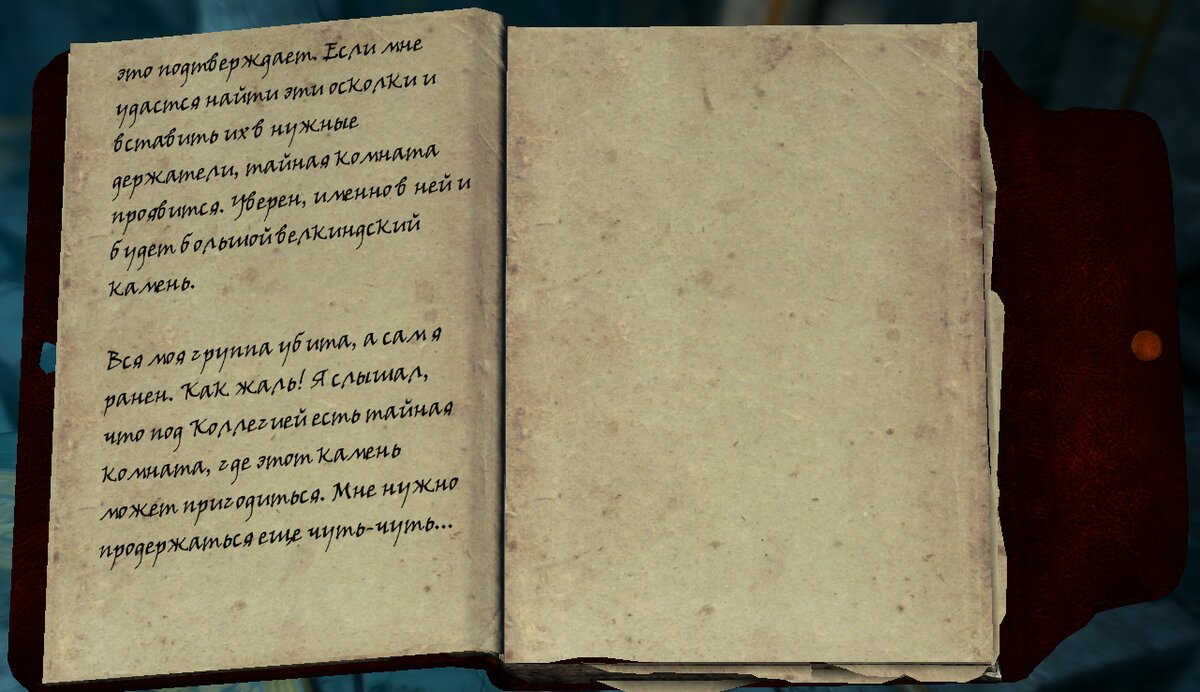 это подтверждает. Если мне
удастся найти эти осколки и
вставить их в нужные
держатели, тайная комната
проявится. Уверен, именно в ней и
будет большой велкиндский
камень.
Вся моя группа убита, а сам я
ранен. Как жаль! Я слышал,
что под Коллегией есть тайная
комната, где этот камень
может пригодиться. Мне нужно
продержаться еще чуть-чуть...